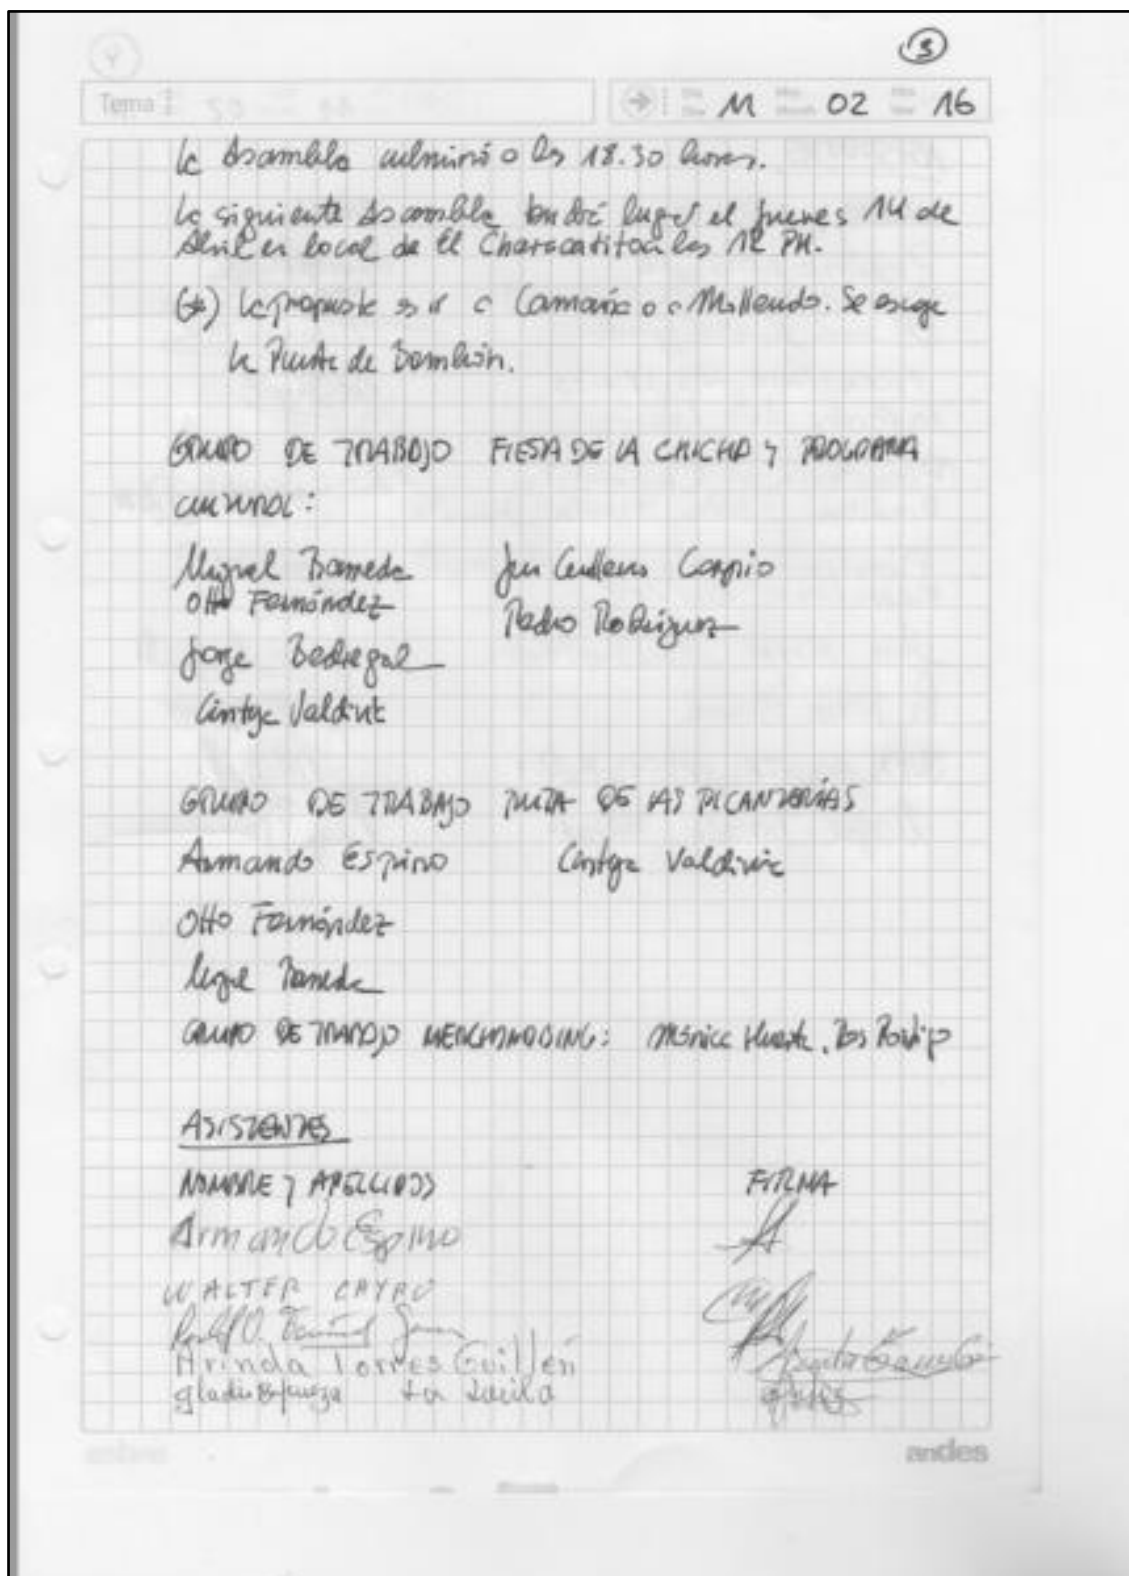 3
Tema
11 02 16
La Asamblea culminó a las 18.30 horas.
La siguiente Asamblea tendrá lugar el jueves 14 de
Abril en local de El Characatito a las 12 PM.
(*) La propuesta es ir a Camaná o a Mollendo. Se escoge
la Punta de Bombón.
GRUPO DE TRABAJO FIESTA DE LA CHICHA Y PROGRAMA
CULTURAL:
Miguel Barreda
Otto Fernández
Jorge Bedregal
Cintya Valdivia
Juan Guillermo Carpio
Pedro Rodríguez
GRUPO DE TRABAJO RUTA DE LAS PICANTERÍAS
Armando Espino Cintya Valdivia
Otto Fernández
Miguel Barreda
GRUPO DE TRABAJO MERCHANDISING: Mónica Huerta,
ASISTENTES
NOMBRE Y APELLIDOS FIRMA
Armando Espino
WALTER CAYRO
Arinda Torres Guillén
Gladis La Lucila
andes